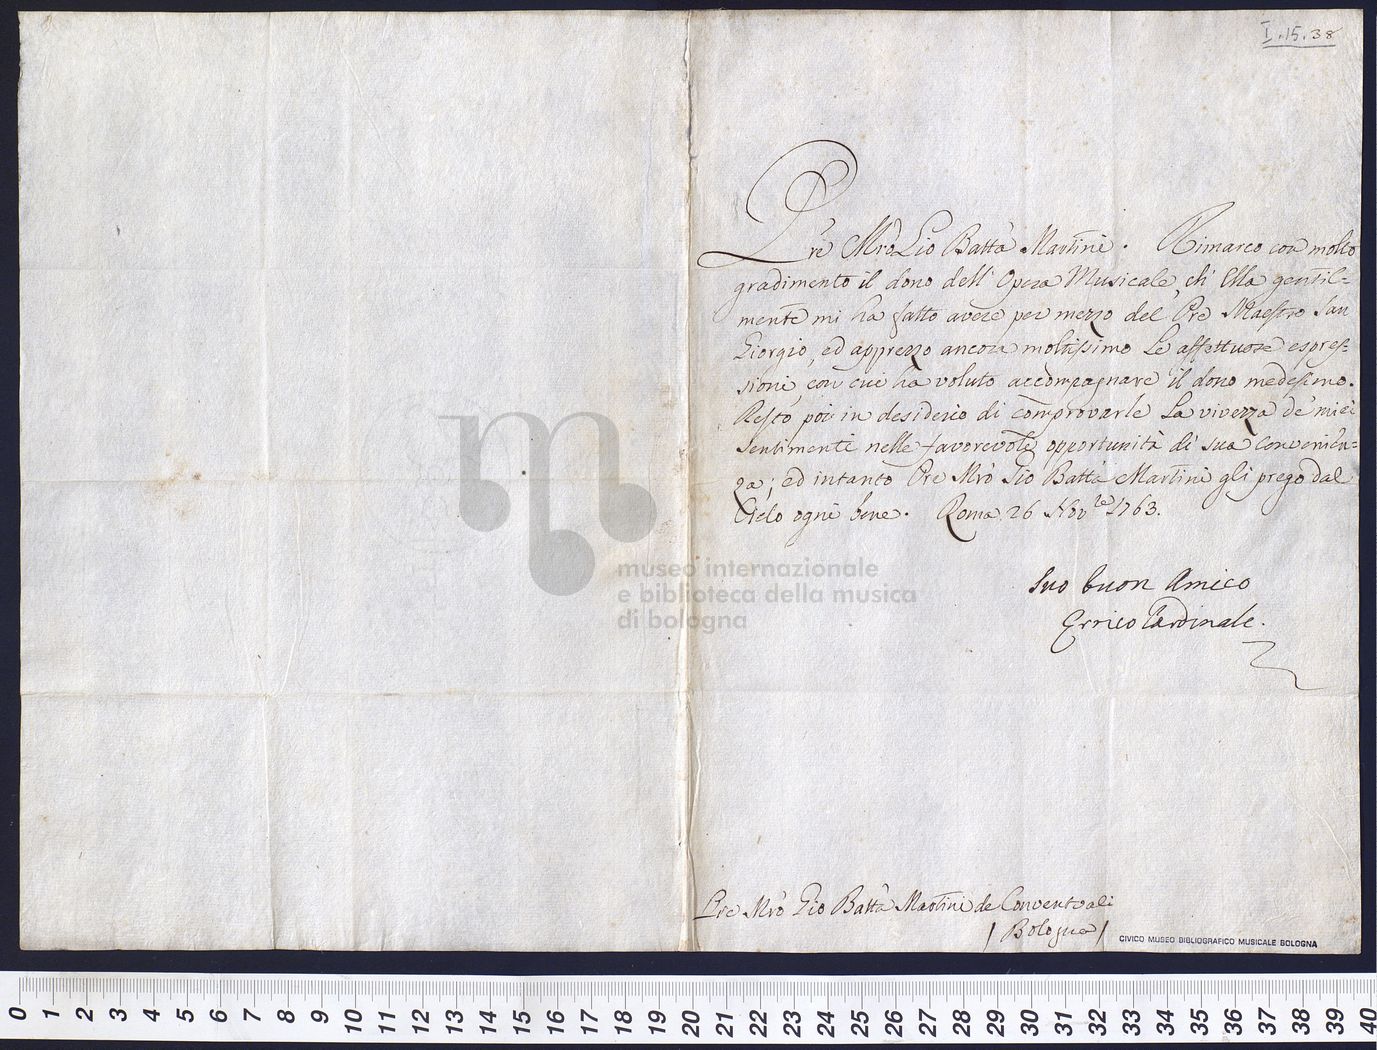 I.15.38
Pre Mro Gio Batta Martini. Rimarco con molto
gradimento il dono dell' Opera Musicale, ch' Ella gentil=
mente mi ha fatto avere per mezzo del Pre Maestro San
Giorgio, ed apprezzo ancora moltissimo le affettuose espres=
sioni, con cui ha voluto accompagnare il dono medesimo.
Resto poi in desiderio di comprovarle la vivezza de' miei
sentimenti nelle favorevole opportunità di sua convenien=
za; ed intanto Pre Mro Gio Batta Martini gli prego dal
Cielo ogni bene. Roma 26 Nov.re 1763.
Suo buon Amico
Errico Cardinale.
Pre Mro Gio Batta Martini de Conventuali
/ Bologna /
CIVICO MUSEO BIBLIOGRAFICO MUSICALE BOLOGNA
museo internazionale
e biblioteca della musica
di bologna
0 1 2 3 4 5 6 7 8 9 10 11 12 13 14 15 16 17 18 19 20 21 22 23 24 25 26 27 28 29 30 31 32 33 34 35 36 37 38 39 40